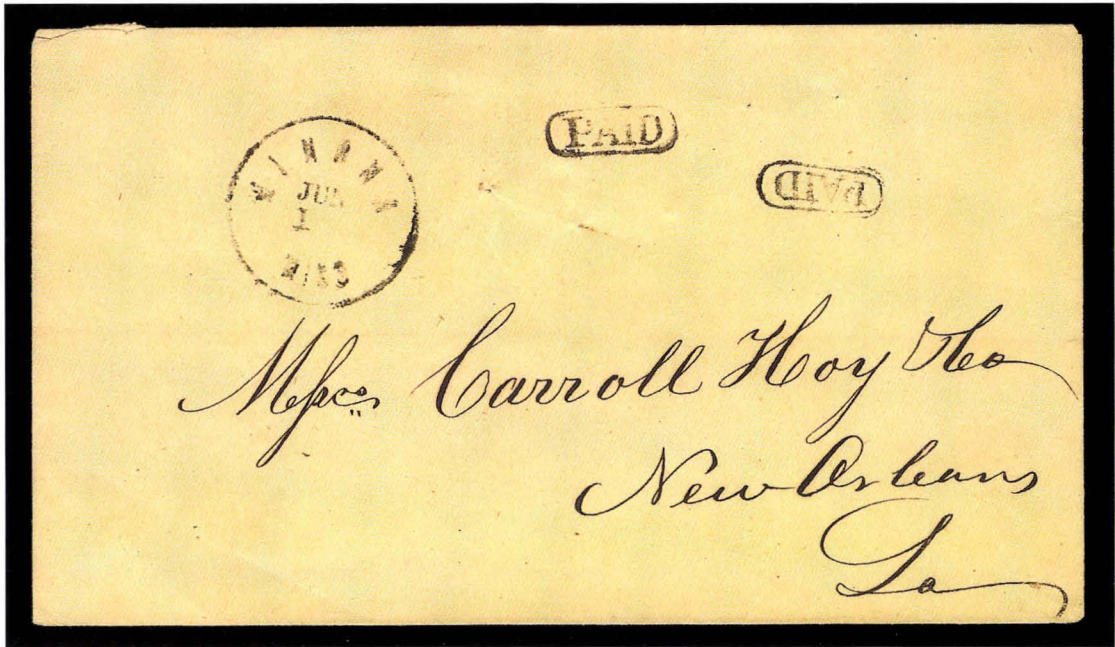 WINONA
JUL
1
MISS
PAID
PAID
Messrs Carroll Hoy & Co
New Orleans
La